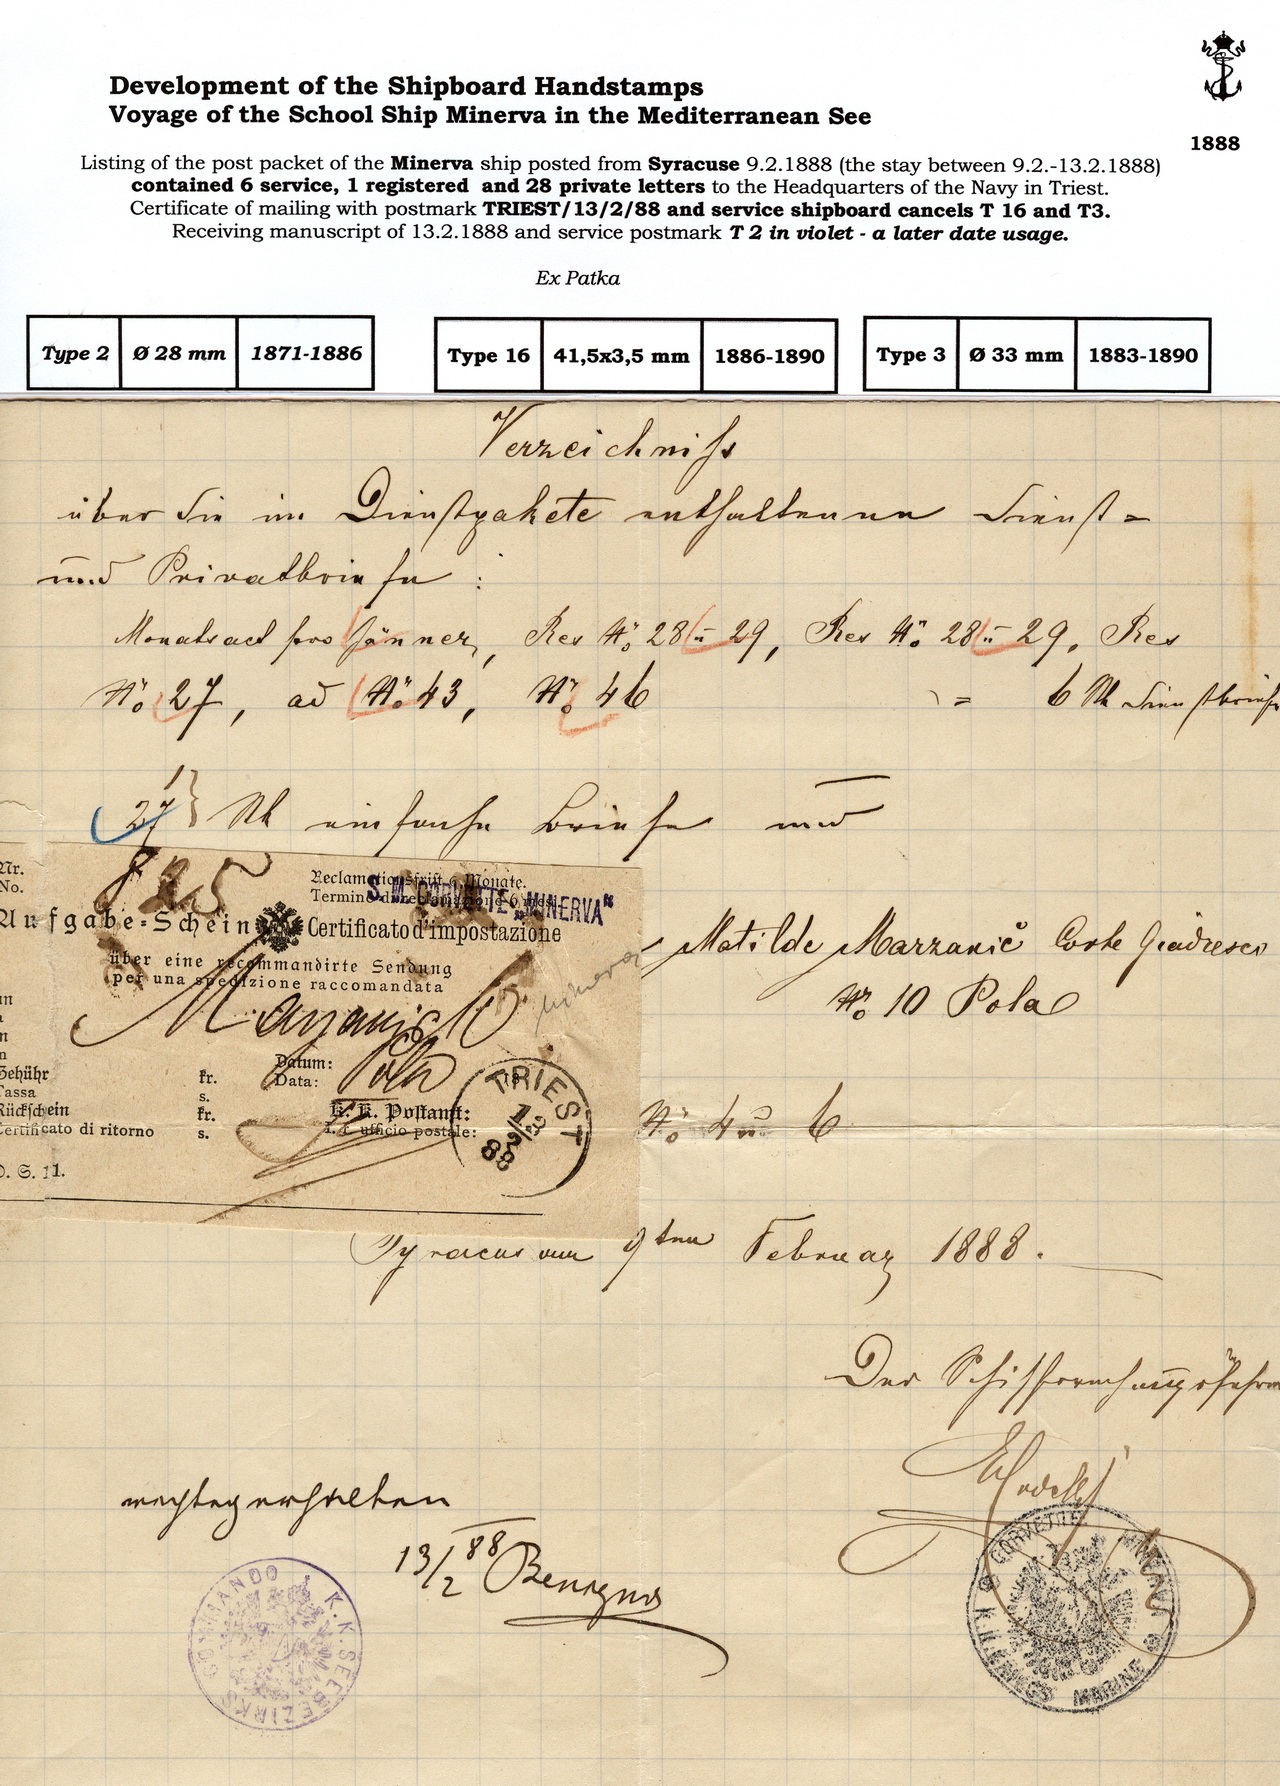 Development of the Shipboard Handstamps
Voyage of the School Ship Minerva in the Mediterranean See
1888
Listing of the post packet of the Minerva ship posted from Syracuse 9.2.1888 (the stay between 9.2.-13.2.1888)
contained 6 service, 1 registered and 28 private letters to the Headquarters of the Navy in Triest.
Certificate of mailing with postmark TRIEST/13/2/88 and service shipboard cancels T 16 and T3.
Receiving manuscript of 13.2.1888 and service postmark T 2 in violet - a later date usage.
Ex Patka
Type 2 Ø 28 mm 1871-1886
Type 16 41,5x3,5 mm 1886-1890
Type 3 Ø 33 mm 1883-1890
Verzeichniss
über die im Dienstpakete enthaltenen Dienst=
und Privatbriefe :
Monatsact pro Jänner, Res No 28 u 29, Res No 28 u 29, Res
No 27, ad No 43, No 46 = 6 Stk Dienstbriefe
1
27 } Stk einfache Briefe und
Nr.
No.
825
Reclamationsfrist 6 Monate.
Termine di reclamazione 6 mesi.
S. M. CORVETTE „MINERVA"
Aufgabe-Schein Certificato d'impostazione
über eine recommandirte Sendung
per una spedizione raccomandata
Minerva
Matilde Marzanić Corte Giadresco
No 10 Pola
Datum:
Data:
Pola
Gebühr fr.
Tassa s.
Rückschein fr.
Certificato di ritorno s.
K. K. Postamt:
I. r. ufficio postale:
TRIEST
13
2
88
D. S. 11.
No 4 u 6
Syracus am 9ten Februar 1888.
Der Schiffsrechnungsführer
richtig erhalten
13/2 88 Benigno
COMMANDO K.K. SEEBEZIRKS
CORVETTE MINERVA
K.K. KRIEGS MARINE